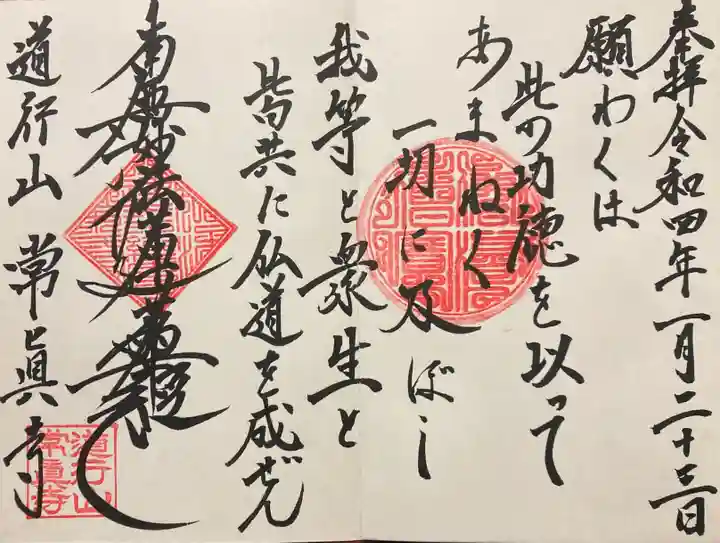 奉拝 令和四年一月二十三日
願わくは
此の功徳を以って
あまねく
一切に及ぼし
我等と衆生と
皆共に仏道を成ぜん
南無妙法蓮華経
道行山 常真寺
道行山
常真寺